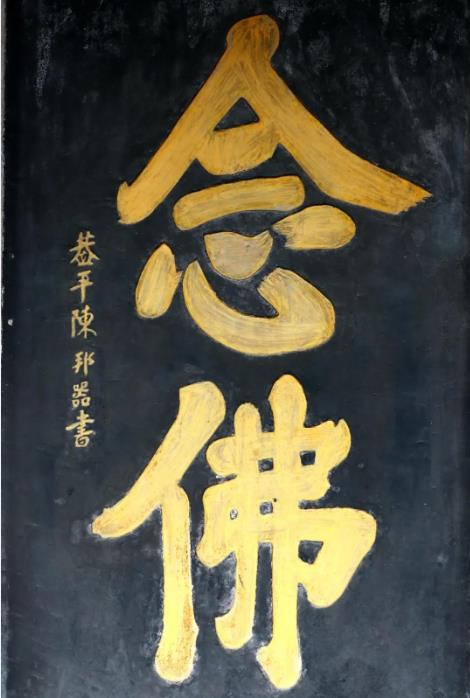 念佛
恭平陳邦器書